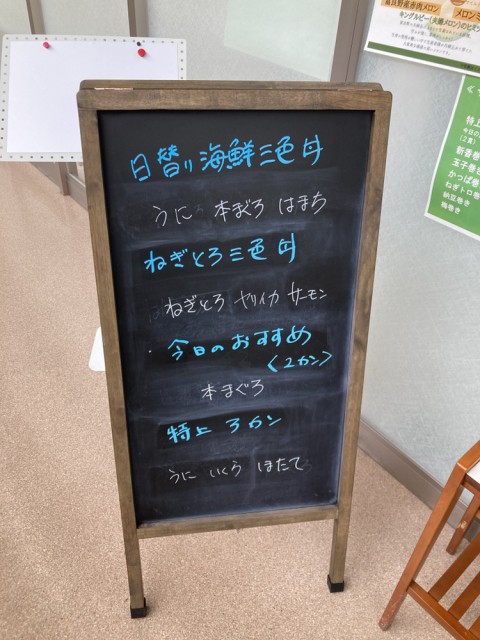 日替り海鮮三色丼
うに 本まぐろ はまち
ねぎとろ三色丼
ねぎとろ ヤリイカ サーモン
今日のおすすめ
<2カン>
本まぐろ
特上 3カン
うに いくら ほたて
富良野産赤肉メロン
キングルビー
メロン
特上
新香巻
玉子巻き
かっぱ巻き
ねぎトロ巻
納豆巻き
梅巻き